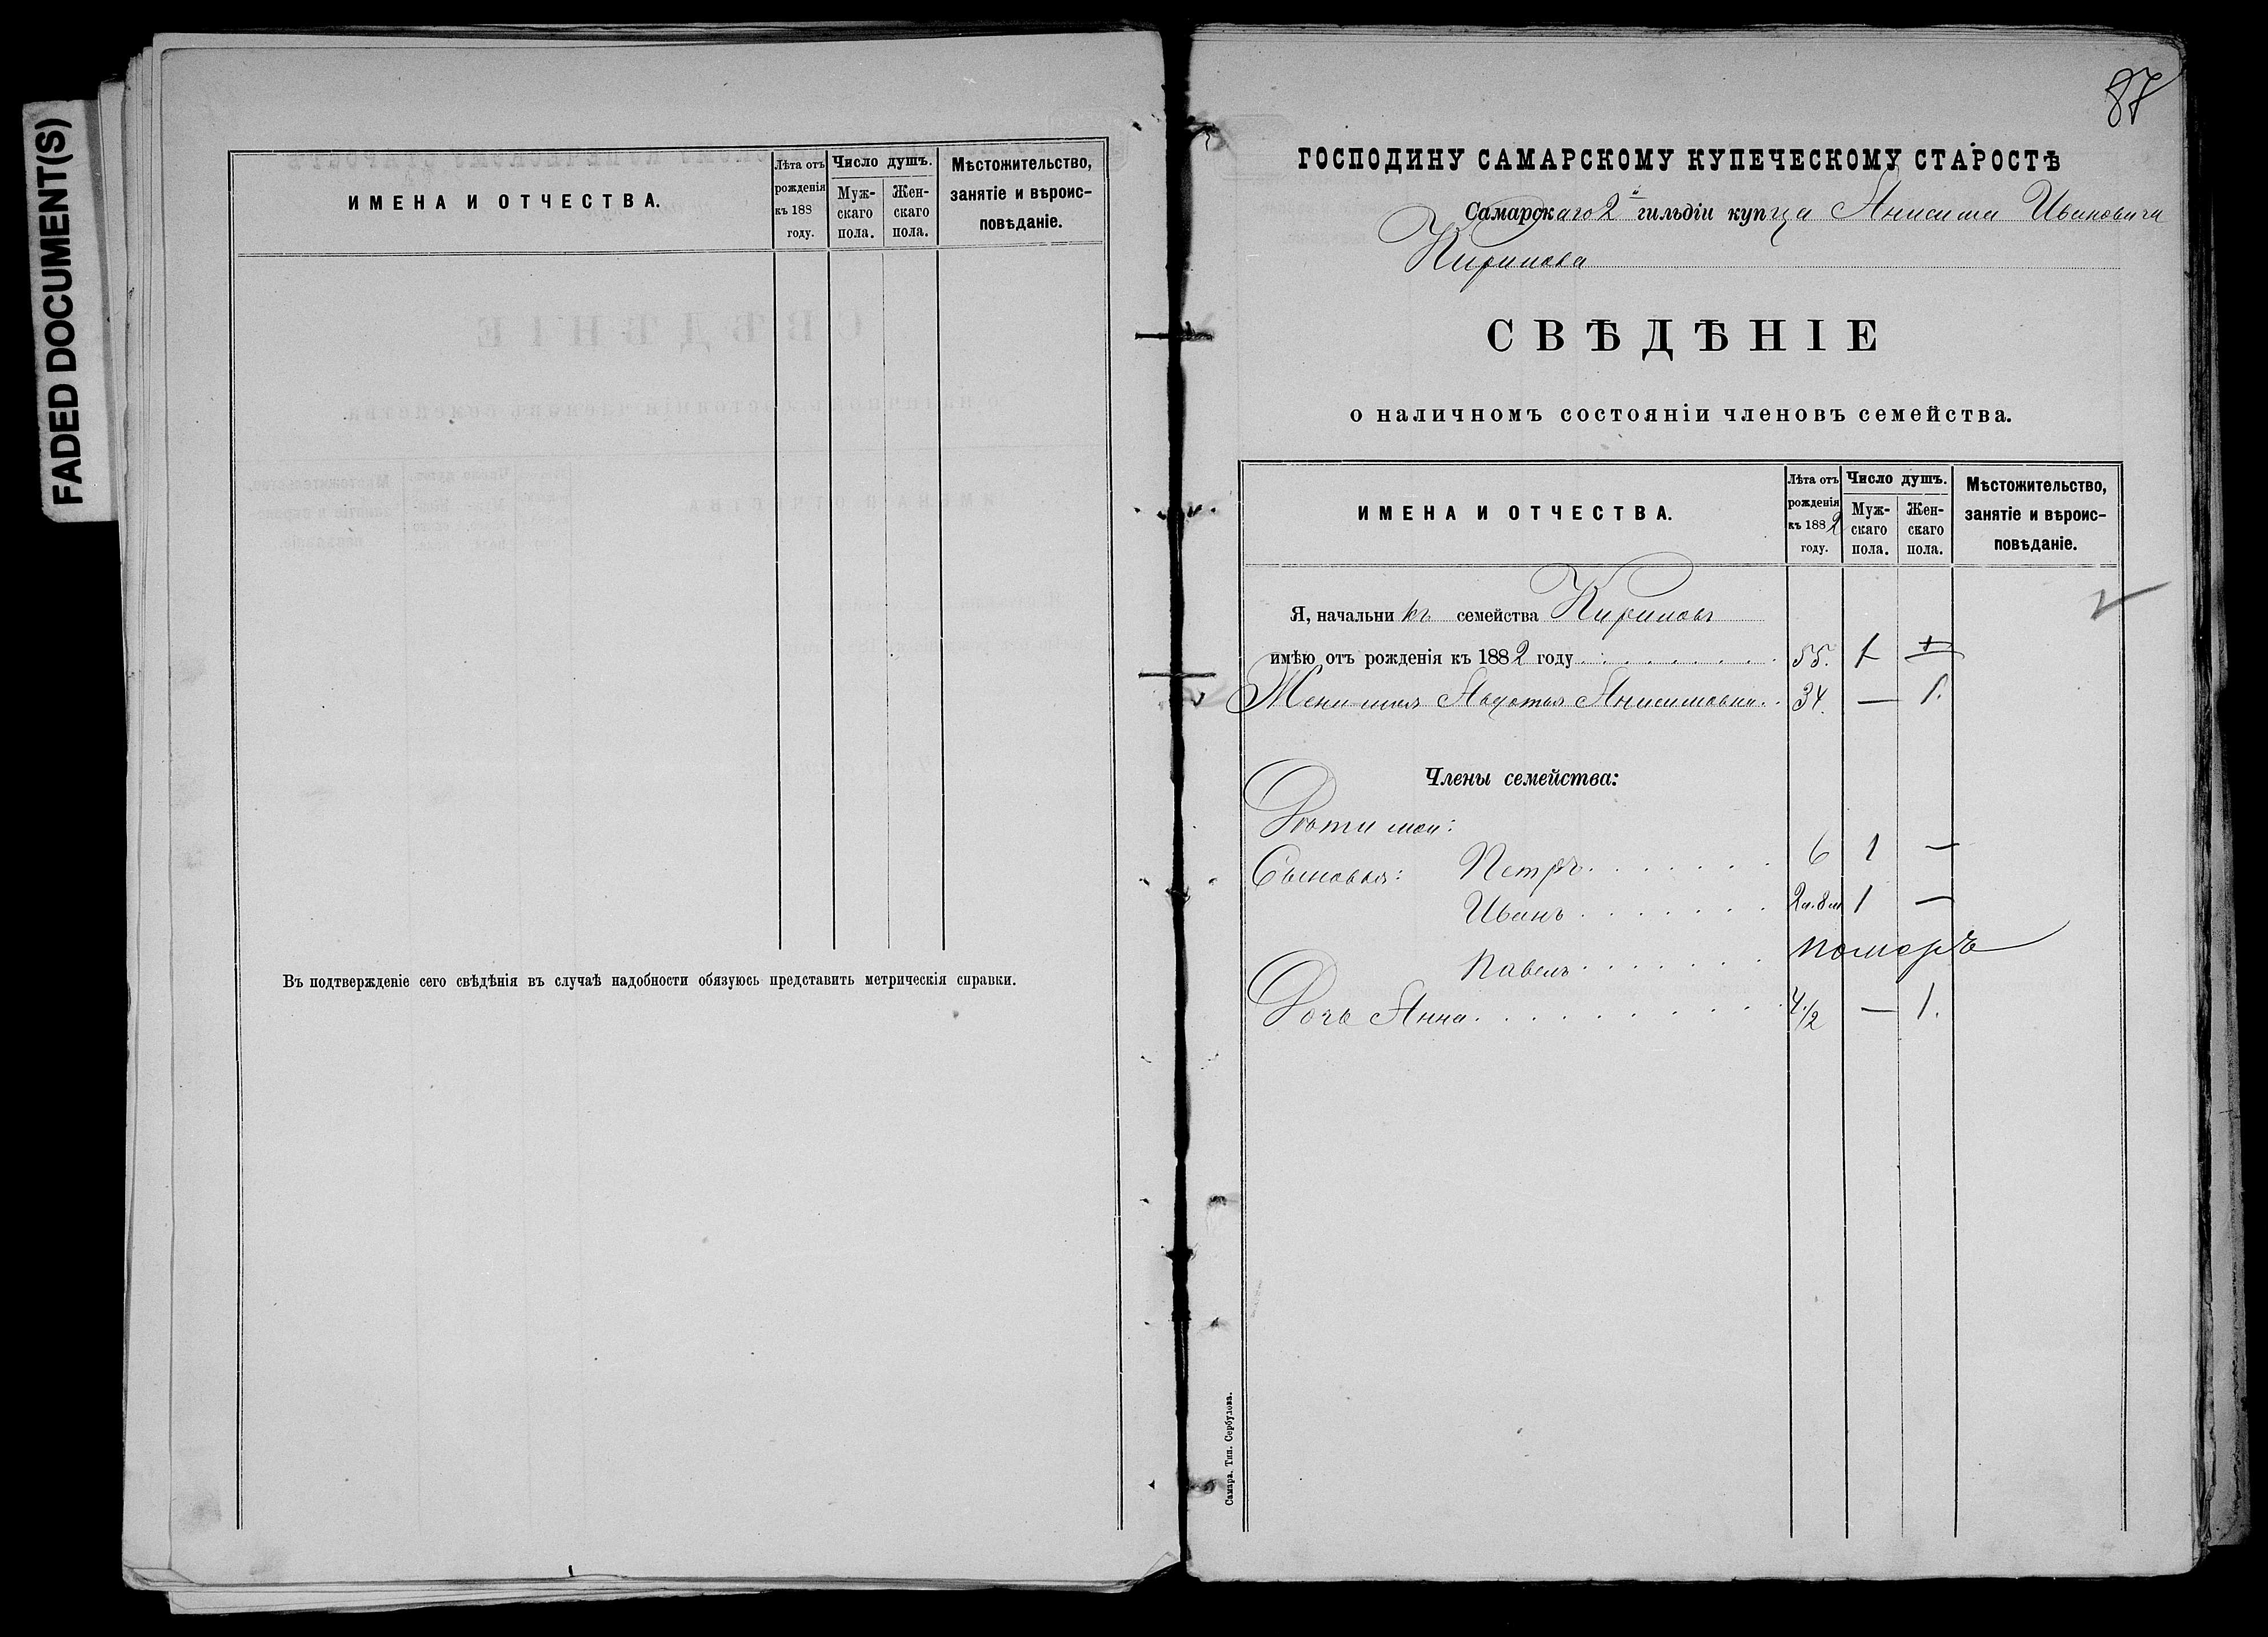 FADED DOCUMENT(S)
ИМЕНА И ОТЧЕСТВА.
Лѣта отъ рожденія къ 188 году.
Число душъ.
Мужскаго пола.
Женскаго пола.
Мѣстожительство, занятіе и вѣроисповѣданіе.
Въ подтвержденіе сего свѣдѣнія въ случаѣ надобности обязуюсь представить метрическія справки.
87
ГОСПОДИНУ САМАРСКОМУ КУПЕЧЕСКОМУ СТАРОСТѢ
Самарскаго 2й гильдіи купца Анисима Ивановича
Кирилова
СВѢДѢНІЕ
о наличномъ состояніи членовъ семейства.
ИМЕНА И ОТЧЕСТВА.
Лѣта отъ рожденія къ 1882 году.
Число душъ.
Мужскаго пола.
Женскаго пола.
Мѣстожительство, занятіе и вѣроисповѣданіе.
Я, начальникъ семейства Кириловъ
имѣю отъ рожденія къ 1882 году 55. 1
Жена моя Авдотья Анисимовна. 34. — 1.
Члены семейства:
Дѣти мои:
Сыновья: Петръ 6 1 —
Иванъ 2 г. 8 м 1 —
Павелъ померъ
Дочь Анна 4 1/2 — 1.
Самара. Тип. Сербулова.